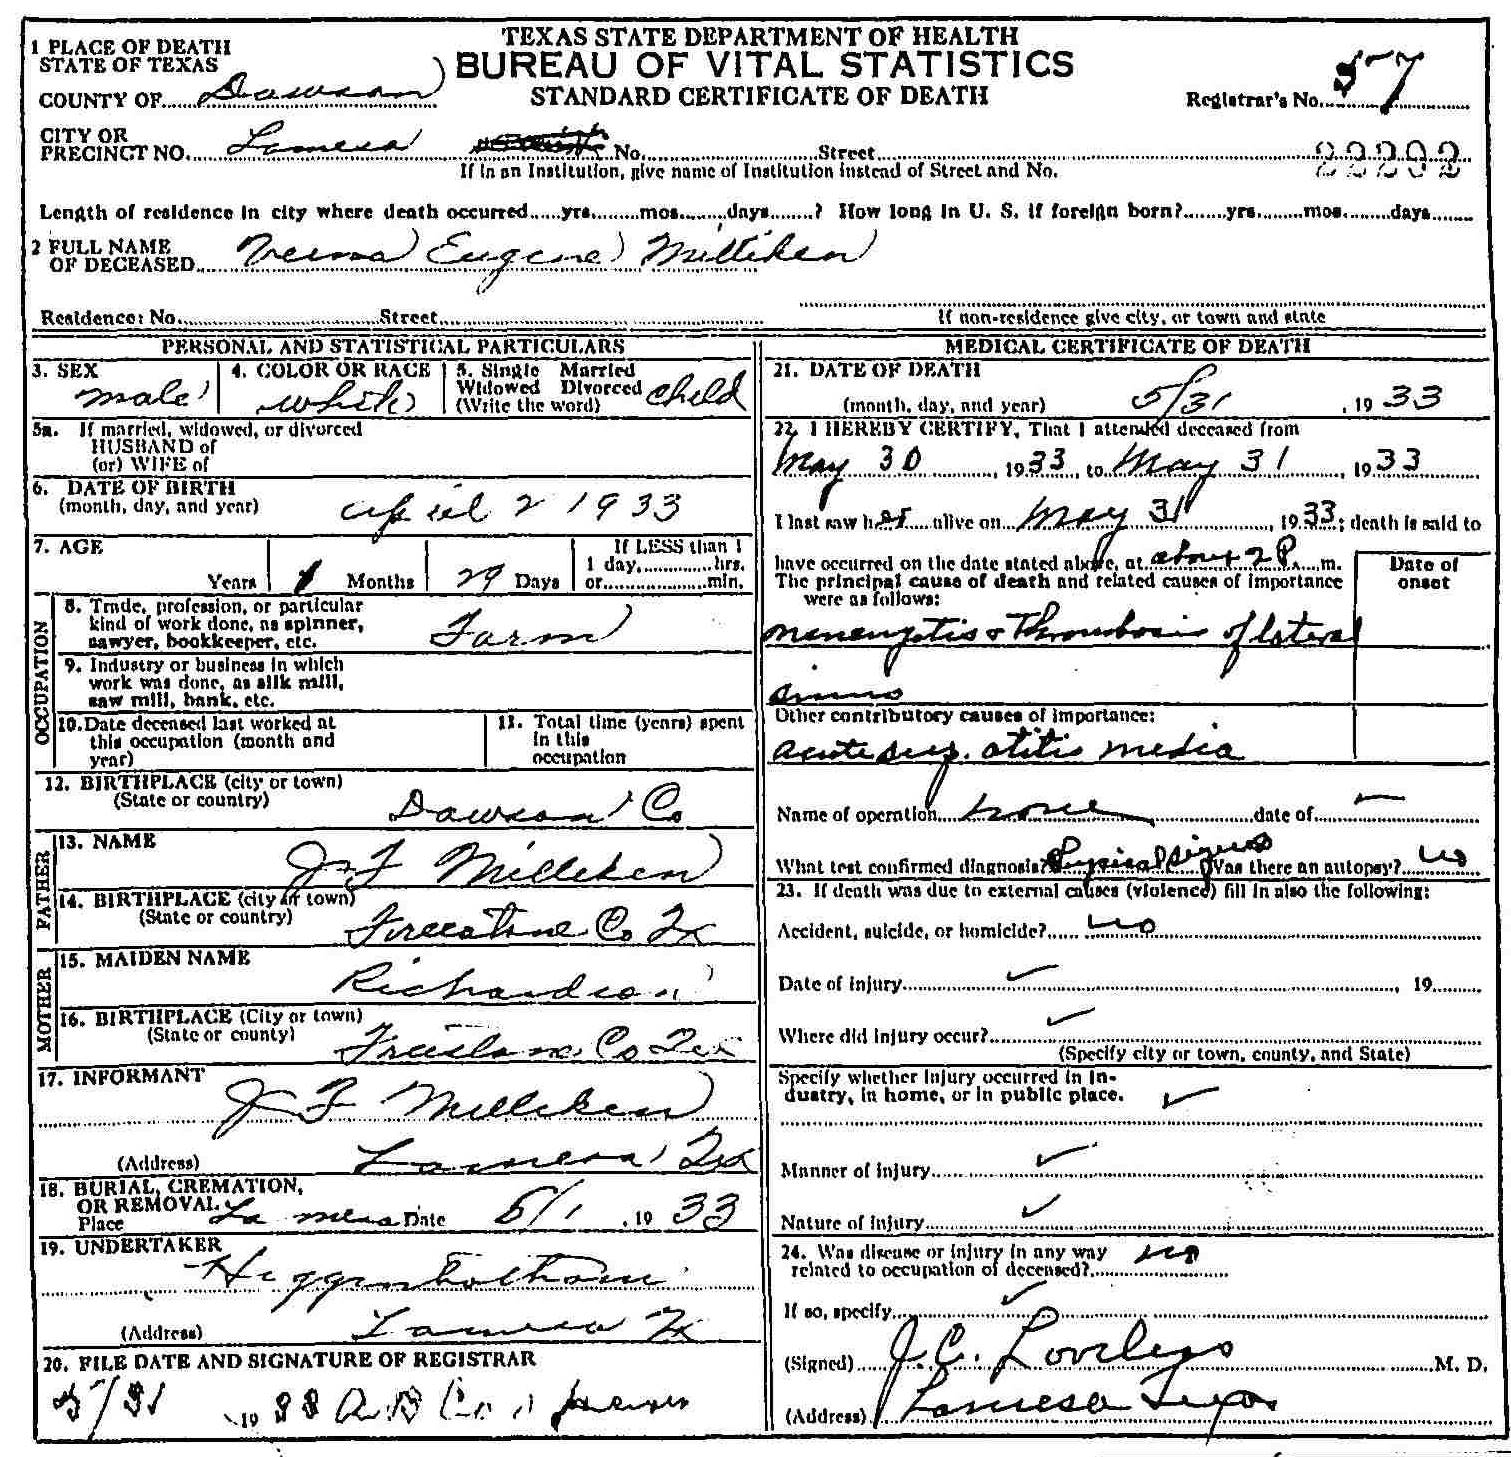 TEXAS STATE DEPARTMENT OF HEALTH
BUREAU OF VITAL STATISTICS
STANDARD CERTIFICATE OF DEATH
1 PLACE OF DEATH
STATE OF TEXAS
COUNTY OF Dawson
Registrar's No. 57
CITY OR
PRECINCT NO. Lamesa No. Street
22292
If in an Institution, give name of Institution instead of Street and No.
Length of residence in city where death occurred yrs. mos. days ? How long in U. S. if foreign born? yrs. mos. days
2 FULL NAME
OF DECEASED Eugene Milliken
Residence: No. Street
If non-residence give city, or town and state
PERSONAL AND STATISTICAL PARTICULARS
3. SEX male
4. COLOR OR RACE white
5. Single Married
Widowed Divorced
(Write the word) child
5a. If married, widowed, or divorced
HUSBAND of
(or) WIFE of
6. DATE OF BIRTH
(month, day, and year) april 2 1933
7. AGE
Years 1 Months 29 Days
If LESS than 1
1 day, hrs.
or min.
OCCUPATION
8. Trade, profession, or particular
kind of work done, as spinner,
sawyer, bookkeeper, etc. Farm
9. Industry or business in which
work was done, as silk mill,
saw mill, bank, etc.
10. Date deceased last worked at
this occupation (month and
year)
11. Total time (years) spent
in this
occupation
12. BIRTHPLACE (city or town)
(State or country) Dawson Co
FATHER
13. NAME J F Milliken
14. BIRTHPLACE (city or town)
(State or country) Freestone Co Tx
MOTHER
15. MAIDEN NAME Richardson
16. BIRTHPLACE (City or town)
(State or county) Freestone Co Tex
17. INFORMANT
J F Milliken
(Address) Lamesa Tex
18. BURIAL, CREMATION,
OR REMOVAL
Place Lamesa Date 6/1, 1933
19. UNDERTAKER
Higginbotham
(Address) Lamesa Tx
20. FILE DATE AND SIGNATURE OF REGISTRAR
5/31 1933
MEDICAL CERTIFICATE OF DEATH
21. DATE OF DEATH
(month, day, and year) 5/31, 1933
22. I HEREBY CERTIFY, That I attended deceased from
May 30, 1933, to May 31, 1933
I last saw her alive on May 31, 1933; death is said to
have occurred on the date stated above, at about 2 P. m.
The principal cause of death and related causes of importance
were as follows:
Date of
onset
menengitis & Thrombosis of lateral
sinus
Other contributory causes of importance:
acute sup. otitis media
Name of operation none date of
What test confirmed diagnosis? Physical signs Was there an autopsy? no
23. If death was due to external causes (violence) fill in also the following:
Accident, suicide, or homicide? no
Date of injury ✓, 19
Where did injury occur? ✓
(Specify city or town, county, and State)
Specify whether injury occurred in in-
dustry, in home, or in public place. ✓
Manner of injury ✓
Nature of injury ✓
24. Was disease or injury in any way
related to occupation of deceased? no
If so, specify ✓
(Signed) J. C. Loveless M. D.
(Address) Lamesa Texas